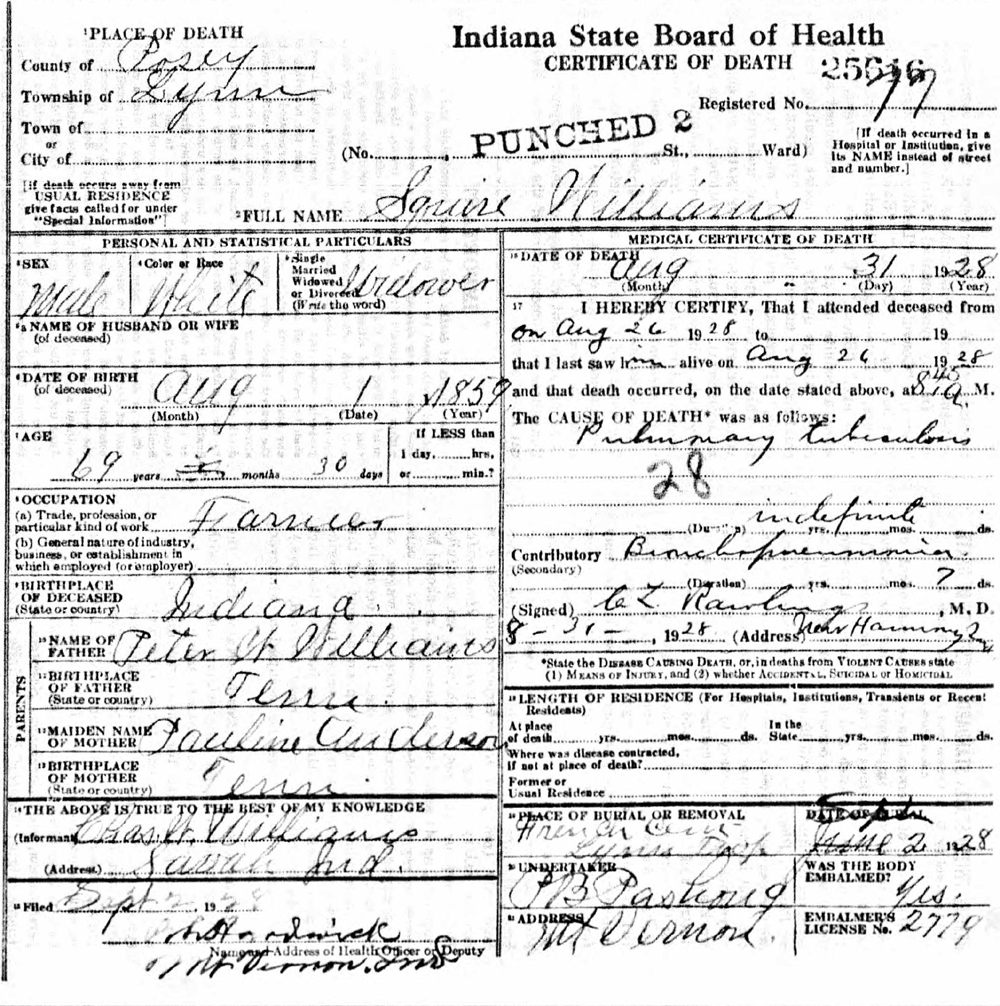 Indiana State Board of Health
CERTIFICATE OF DEATH
25516
Registered No. 77
¹PLACE OF DEATH
County of Posey
Township of Lynn
Town of
or
City of
(No. , PUNCHED 2 St., Ward)
[If death occurred in a Hospital or Institution, give its NAME instead of street and number.]
[If death occurs away from USUAL RESIDENCE give facts called for under "Special Information"]
²FULL NAME Squire Williams
PERSONAL AND STATISTICAL PARTICULARS
³SEX Male
⁴Color or Race White
⁵Single Married Widowed or Divorced (Write the word) Widower
⁵ᵃNAME OF HUSBAND OR WIFE
(of deceased)
⁶DATE OF BIRTH
(of deceased) Aug 1 1859
(Month) (Date) (Year)
⁷AGE
69 years months 30 days
If LESS than
1 day, hrs,
or min.?
⁸OCCUPATION
(a) Trade, profession, or
particular kind of work Farmer
(b) General nature of industry,
business, or establishment in
which employed (or employer)
⁹BIRTHPLACE
OF DECEASED
(State or country) Indiana
PARENTS
¹⁰NAME OF
FATHER Peter W Williams
¹¹BIRTHPLACE
OF FATHER
(State or country) Tenn.
¹²MAIDEN NAME
OF MOTHER Pauline Anderson
¹³BIRTHPLACE
OF MOTHER
(State or country) Tenn.
¹⁴THE ABOVE IS TRUE TO THE BEST OF MY KNOWLEDGE
(Informant) Chas. W. Williams
(Address) Savah Ind.
¹⁵Filed Sept 2, 1928
Hardwick
Mt Vernon. Ind
Name and Address of Health Officer or Deputy
MEDICAL CERTIFICATE OF DEATH
¹⁶DATE OF DEATH Aug 31 1928
(Month) (Day) (Year)
¹⁷ I HEREBY CERTIFY, That I attended deceased from
on Aug 26 1928 to 19
that I last saw him alive on Aug 26 1928
and that death occurred, on the date stated above, at 845 a. M.
The CAUSE OF DEATH* was as follows:
Pulmonary tuberculosis
28
indefinite
(Duration) yrs. mos. ds.
Contributory Bronchopneumonia
(Secondary)
(Duration) yrs. mos. 7 ds.
(Signed) C L Rawlings, M. D.
8-31-, 1928 (Address) New Harmony
*State the DISEASE CAUSING DEATH, or, in deaths from VIOLENT CAUSES state
(1) MEANS OF INJURY, and (2) whether ACCIDENTAL, SUICIDAL or HOMICIDAL
¹⁸LENGTH OF RESIDENCE (For Hospitals, Institutions, Transients or Recent
Residents)
At place
of death yrs. mos. ds.
In the
State yrs. mos. ds.
Where was disease contracted,
if not at place of death?
Former or
Usual Residence
¹⁹PLACE OF BURIAL OR REMOVAL
French Cem
Lynn Twp
DATE OF BURIAL
Sept
June 2 1928
²⁰UNDERTAKER
WAS THE BODY
EMBALMED? Yes.
²¹ADDRESS
Mt Vernon.
EMBALMER'S
LICENSE No. 2779